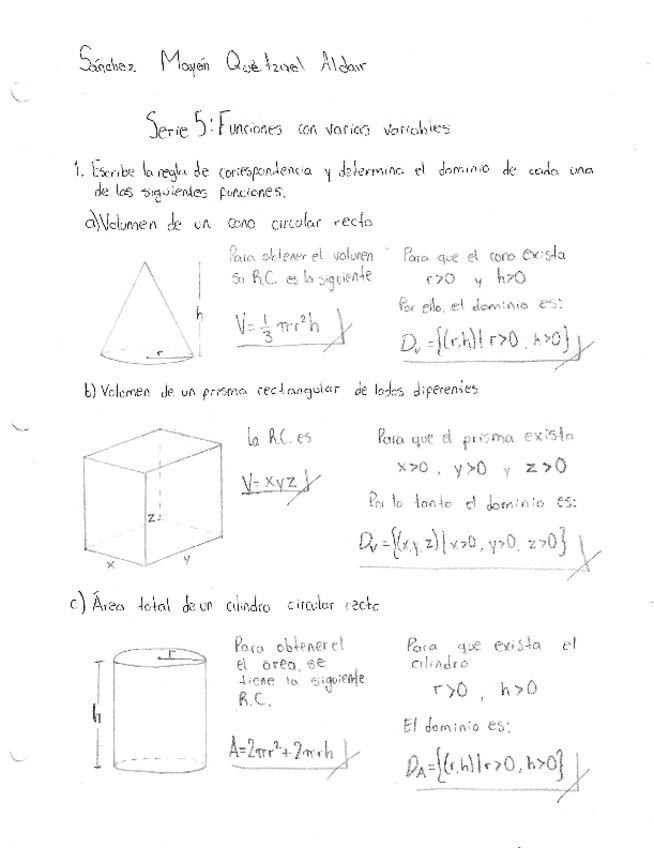 Sánchez Mayén Quetzael Aldair
Serie 5: Funciones con varias variables
1. Escribe la regla de correspondencia y determina el dominio de cada una
de las siguientes funciones.
a) Volumen de un cono circular recto
Para obtener el volumen
su R.C. es la siguiente
V=1/3 πr²h
Para que el cono exista
r>0 y h>0
Por ello, el dominio es:
Dv={(r,h)|r>0, h>0}
h
r
b) Volumen de un prisma rectangular de lados diferentes
la R.C. es
V=xyz
Para que el prisma exista
x>0, y>0 y z>0
Por lo tanto el dominio es:
Dv={(x,y,z)|x>0, y>0, z>0}
z
x
y
c) Área total de un cilindro circular recto
Para obtener el
el área, se
tiene la siguiente
R.C.
A=2πr²+2πrh
Para que exista el
cilindro
r>0, h>0
El dominio es:
D_A={(r,h)|r>0, h>0}
r
h